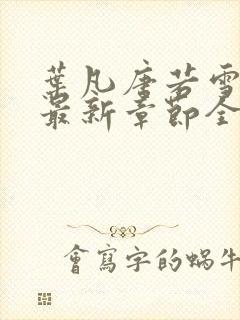 葉凡唐若雪
最新章節全
會寫字的蝸牛